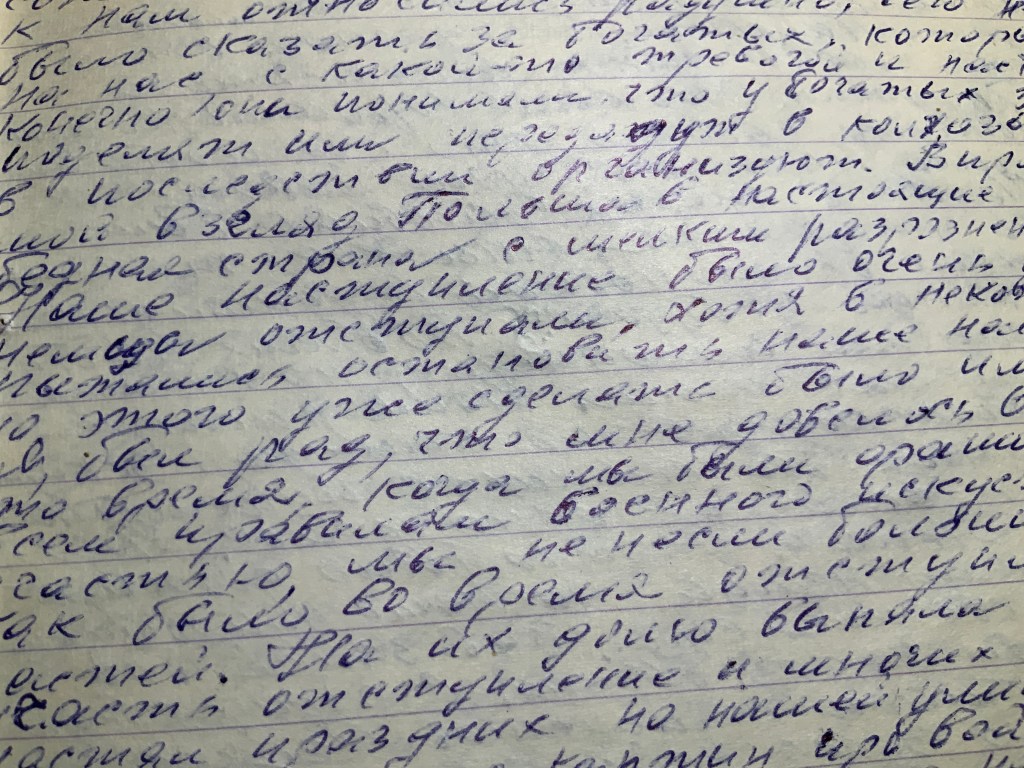 к нам относились радушно, чего н
было сказать за богатых, которы
на нас с какой-то тревогой и наст
конечно они понимали, что у богатых з
поделят или передадут в колхоз
в последствии организуют.
мой взгляд Польша в настоящие
бедная страна с мелким раздроблен
Наше наступление было очень
немцы отступали, хотя в неков
пытались остановить наше нас
но этого уже сделать было им
Я, был рад, что мне довелось в
то время, когда мы были
всем правилам военного искус
счастью, мы не несли больши
как было во время отступл
астей. На их долю выпала
часть отступление и многих
настал праздник на нашей улиц
картин про вой